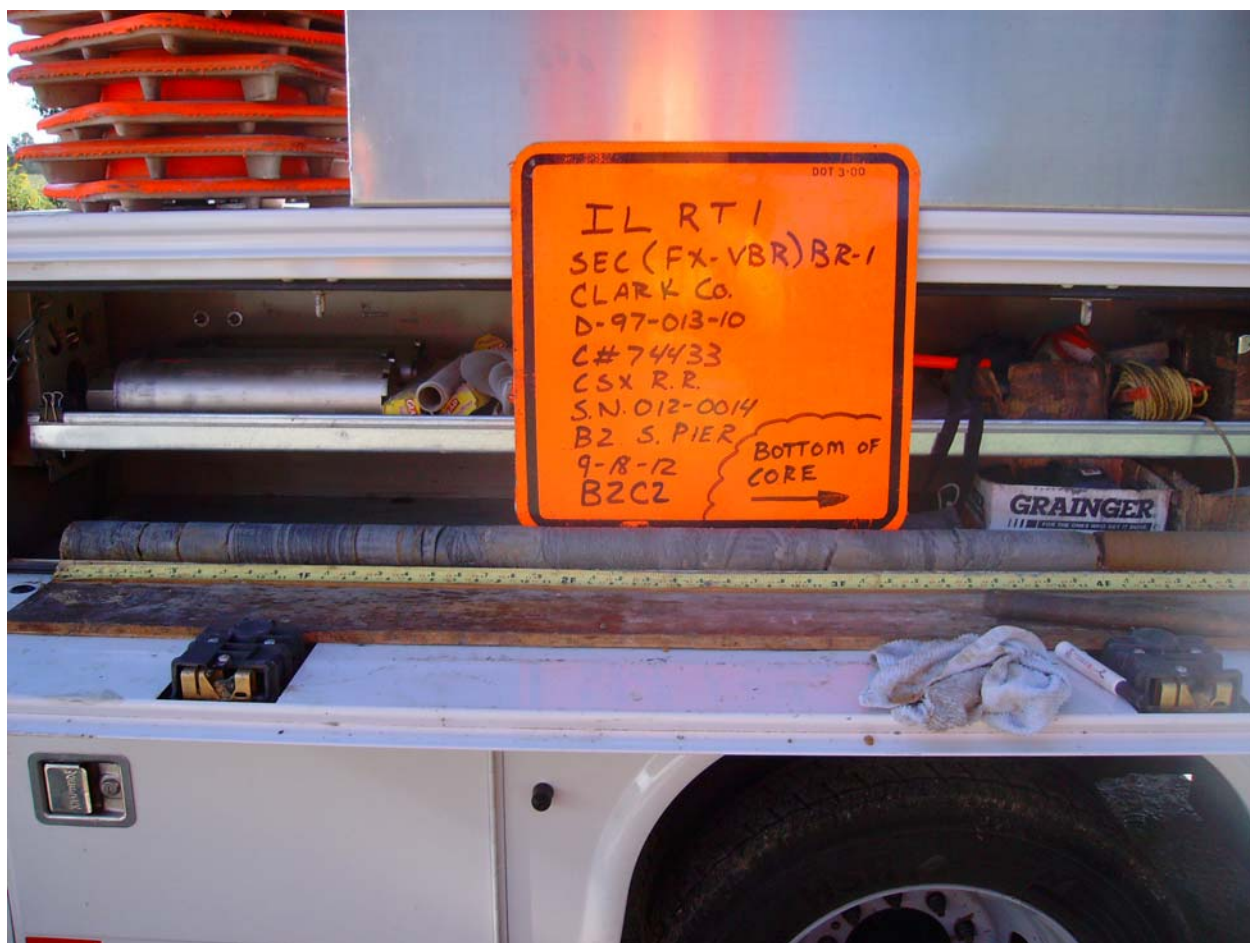 DOT 3-00
IL RT 1
SEC (FX-VBR) BR-1
CLARK Co.
D-97-013-10
C# 74433
CSX R.R.
S.N. 012-0014
B2 S. PIER
9-18-12
B2C2
BOTTOM OF
CORE
GRAINGER
FOR THE ONES WHO GET IT DONE
1F 2F 3F 4F